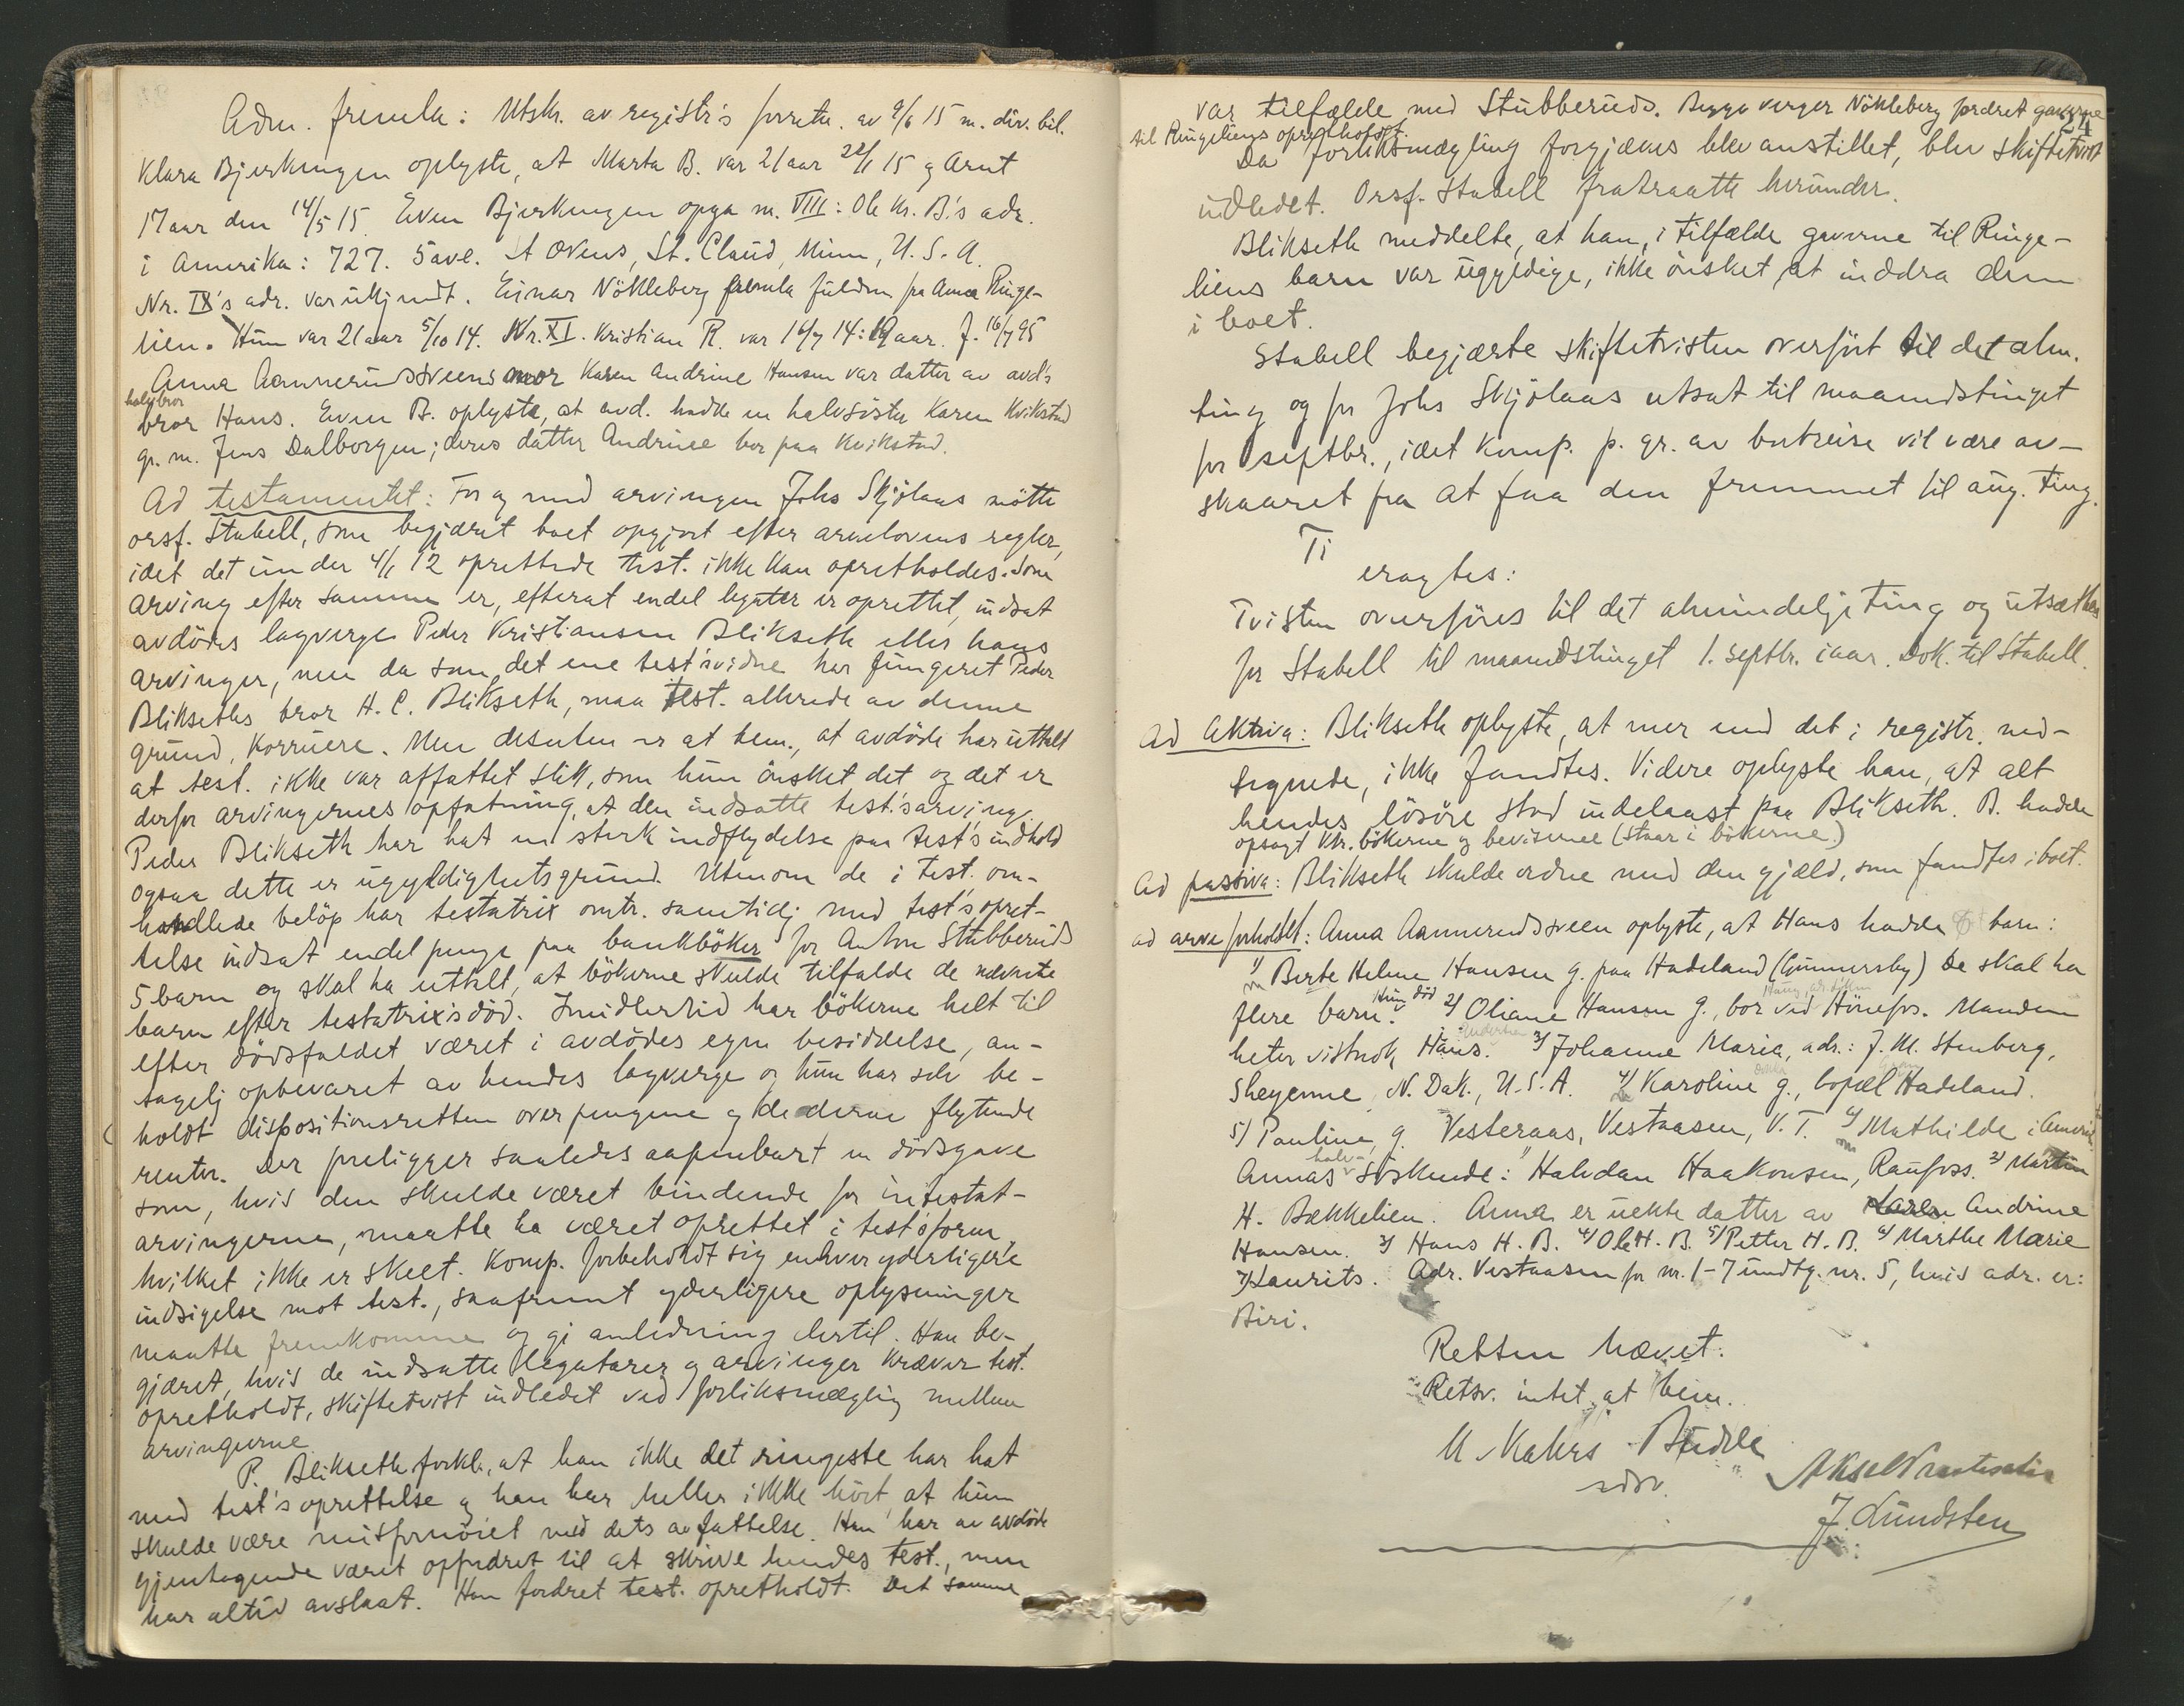 Adm. fremla: Utskr. av registr's forretn. av 9/6 15 m. div. bil.
Klara Bjerkengen oplyste, at Marta B. var 21 aar 22/1 15 g Arnt
17 aar den 14/5 15. Even Bjerkengen opga m. VIII: Ole Kr. B.'s adr.
i Amerika: 727. 5 ave. St. Claud, Minn, U.S.A.
Nr. IX's adr. var ukjendt. Einar Nökleberg fremla fuldm. fra Anna Ringe-
lien. Hun var 21 aar 5/10 14. Nr. XI. Kristian R. var 16/7 14: 19 aar. f. 16/7 95
Anna Aannerudsveens mor Karen Andrine Hansen var datter av avd's
halvbror
bror Hans. Even B. oplyste, at avd. hadde en halvsöster Karen Kvikstad
g. m. Jens Dalborgen; deres datter Andrine bor paa Kvikstad.
Ad testamentet: For og med arvingen Johs Skjölaas mötte
orsf. Stabell, som begjæret boet opgjort efter arvelovens regler,
idet det under 4/1 12 oprettede test. ikke kan opretholdes. Som
arving efter samme er, efterat endel legater er oprettet, indsat
avdödes lagverge Peder Kristiansen Blikseth eller hans
arvinger, men da som det ene test'svidne har fungeret Peder
Blikseths bror H. C. Blikseth, maa test. allerede av denne
grund, korruere. Men desuten er at bem., at avdöde har uttalt
at test. ikke var affattet slik, som hun önsket det og det er
derfor arvingernes opfatning, at den indsatte test.'sarving
Peder Blikseth har hat en sterk indflydelse paa test's indhold
ogsaa dette er ugyldighetsgrund. Utenom de i test. om-
handlede belöp har testatrix omtr. samtidig med test's opret-
telse indsat endel penge paa bankböker for Anton Stubberuds
5 barn og skal ha uttalt, at bökerne skulde tilfalde de nævnte
barn efter testatrix's död. Imidlertid har bökerne helt til
efter dödsfaldet været i avdödes egen besiddelse, an-
tagelig opbevaret av hendes lagverge og hun har selv be-
holdt dispositionsretten over pengene g de derav flytende
renter. Der foreligger saaledes aapenbart en dödsgave
som, hvis den skulde været bindende for intestat-
arvingerne, maatte ha været oprettet i test'sform,
hvilket ikke er skeet. Komp. forbeholdt sig enhver yderligere
indsigelse mot test., saafremt yderligere oplysninger
maatte fremkomme og gi anledning dertil. Han be-
gjæret, hvis de indsatte legatarer g arvinger kræver test.
opretholdt, skiftetvist indledet ved forliksmægling mellem
arvingerne.
P. Blikseth forkl., at han ikke det ringeste har hat
med test's oprettelse g han har heller ikke hört, at hun
skulde være misfornöiet med dets avfattelse. Han har av avdöde
gjentagende været opfordret til at skrive hendes test., men
har altid avslaat. Han fordret test. opretholdt. Det samme
var tilfælde med Stubberuds. Begges verger Nökleberg fordret gaverne
24
til Ringeliens opretholdt.
Da forliksmægling forgjæves blev anstillet, blev skiftetvist
indledet. Orsf. Stabell fratraatte herunder.
Blikseth meddelte, at han, i tilfælde gaverne til Ringe-
liens barn var ugyldige, ikke önsket at inddra dem
i boet.
Stabell begjærte skiftetvisten overfört til det alm.
ting og for Johs Skjölaas utsat til maanedstinget
for septbr., idet komp. p. gr. av bortreise vil være av-
skaaret fra at faa den fremmet til aug. ting.
Ti
eragtes:
Tvisten overföres til det almindelige ting og utsættes
for Stabell til maanedstinget 1. septbr. iaar. Dok. til Stabell.
Ad Aktiva: Blikseth oplyste, at mer end det i registr. ned-
tegnede, ikke fandtes. Videre oplyste han, at alt
hendes lösöre stod indelaast paa Blikseth. B. hadde
opsagt bökerne g beviserne (staar i bökerne)
Ad passiva: Blikseth skulde ordne med den gjæld, som fandtes i boet.
ad arveforholdet: Anna Aannerudsveen oplyste, at Hans hadde 6 barn:
1) Berte Helene Hansen g. paa Hadeland (Gunnersby) De skal ha
flere barn. Hun död 2) Oliane Hansen g., bor ved Hönefos. Manden
heter vistnok Hans. 3) Johanne Maria, adr.: J. M. Stenberg,
Sheyenne, N. Dak., U.S.A. 4) Karoline g., bopæl Hadeland.
5) Pauline, g. Vesteraas, Vestaasen, V. T. 6) Mathilde i Amerika
Annas halv-söskende: 1) Halvdan Haakonsen, Raufoss. 2) Martin
H. Bækkelien. Anna er uekte datter av Karen Andrine
Hansen. 3) Hans H. B. 4) Ole H. B. 5) Petter H. B. 6) Marthe Marie
7) Laurits. Adr. Vestaasen for nr. 1-7 undtg. nr. 5, hvis adr. er:
Biri.
Retten hævet.
Retsv. intet at bem.
U. Kahrs Budde
sdsv.
J. Lundsten